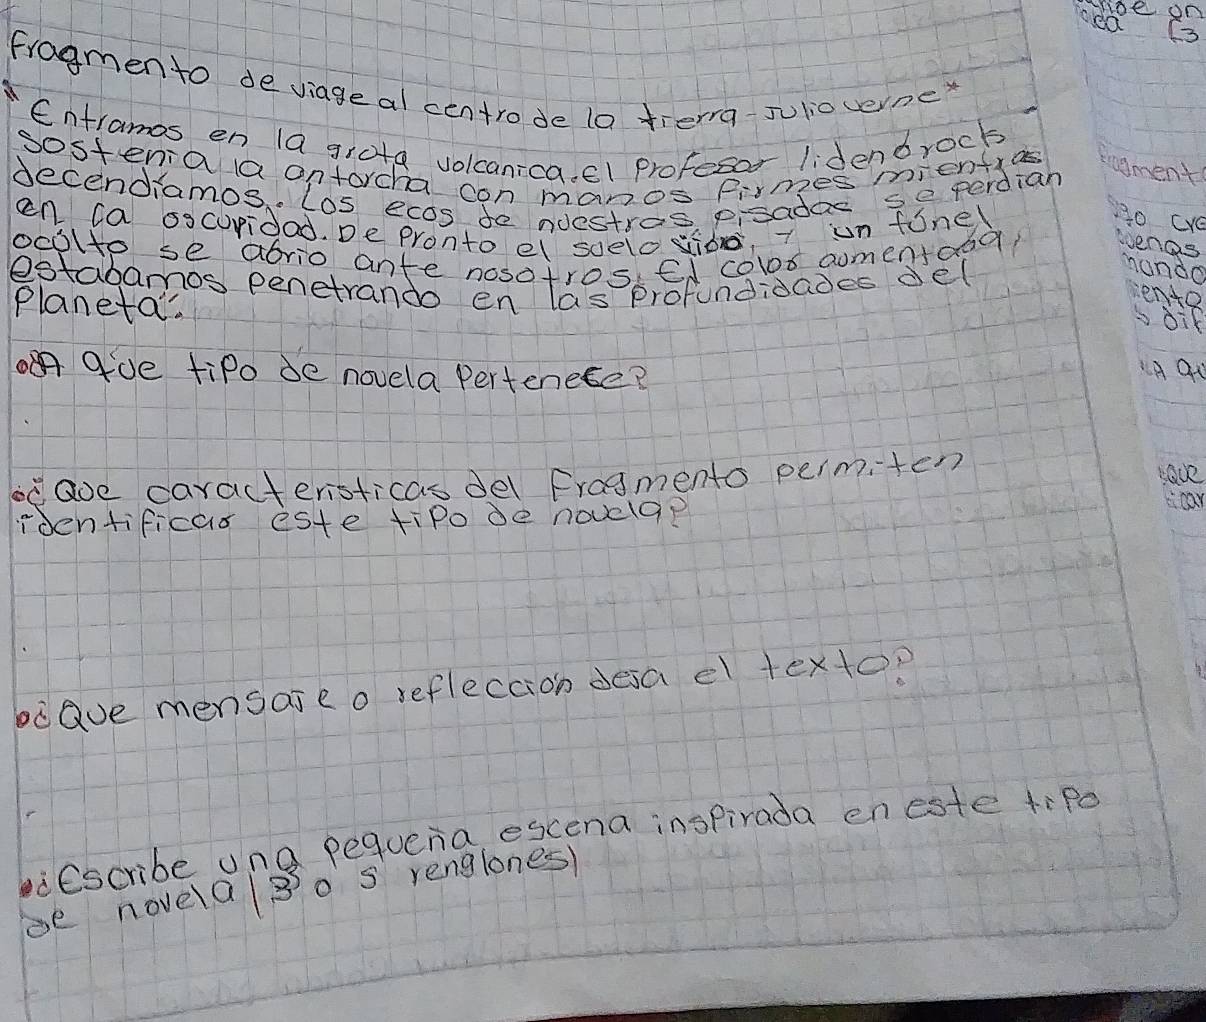 Fragmento de viage al centro de la tierra - Julio verne"
"Entramos en la grota volcanica. El Profesor lidenbrock
sostenia la antorcha con manos firmes mientras
decendíamos. Los ecos de nuestras pisadas se perdian
en la oscuridad. De Pronto el suelo vibro, y un túnel
oculto se abrio ante nosotros. El color aumentaba,
estabamos penetrando en las profundidades del
Planeta".
¿A qué tipo de novela Pertenece?
¿Que caracteristicas del Fragmento permiten
identificar este tipo de novela?
¿Que mensaje o refleccion deja el texto?
¿Escribe una pequeña escena inspirada en este tipo
de novela (3 o 5 renglones)
Fragment
mando
A qu
que
icar